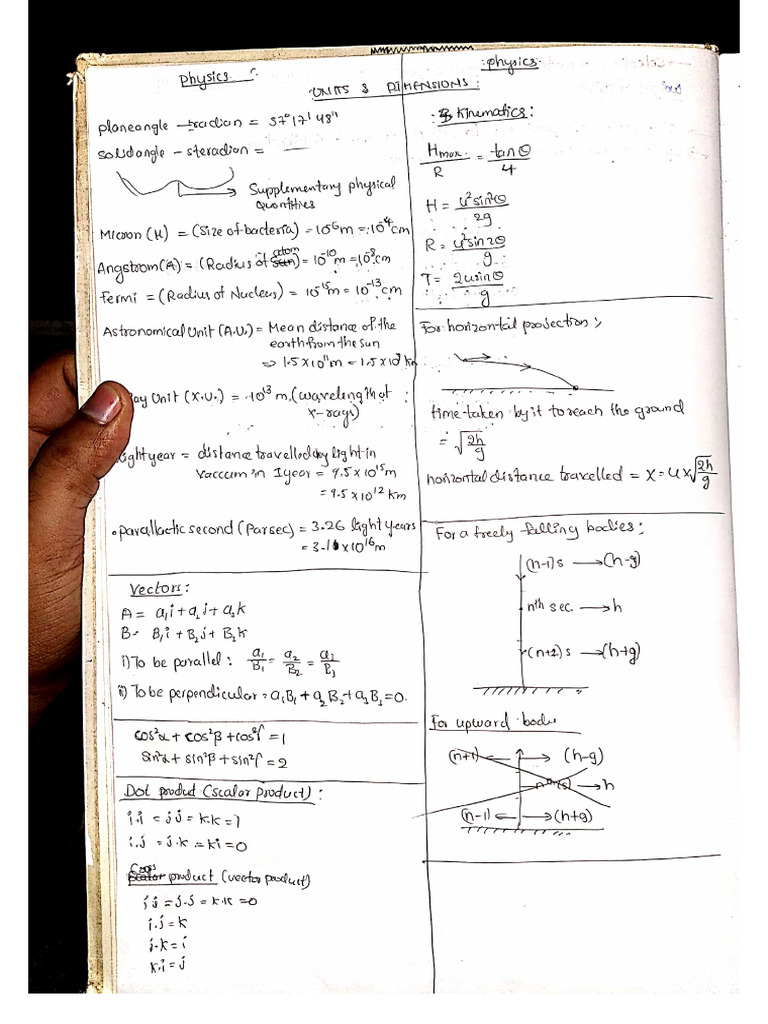 Physics
UNITS & DIMENSIONS:
planeangle - radian = 57° 17' 48"
solidangle - steradian =
Supplementary physical
Quantities
Micron (μ) = (Size of bacteria) = 10⁻⁶m = 10⁻⁴cm
Angstrom (A) = (Radius of atom) = 10⁻¹⁰m = 10⁻⁸cm
fermi = (Radius of Nucleus) = 10⁻¹⁵m = 10⁻¹³cm
Astronomical Unit (A.U.) = Mean distance of the
earth from the sun
⇒ 1.5 x 10¹¹m = 1.5 x 10⁸ km
ray Unit (X.U.) = 10⁻¹³ m. (wavelength of
x-rays)
lightyear = distance travelled by light in
vaccum in 1 year = 9.5 x 10¹⁵m
= 9.5 x 10¹² km
parallactic second (Parsec) = 3.26 light years
= 3.16 x 10¹⁶m
Vectors:
A = a₁i + a₂j + a₃k
B = B₁i + B₂j + B₃k
i) To be parallel: a₁/B₁ = a₂/B₂ = a₃/B₃
ii) To be perpendicular = a₁B₁ + a₂B₂ + a₃B₃ = 0.
cos²α + cos²β + cos²γ = 1
sin²α + sin²β + sin²γ = 2
Dot product (scalar product):
i.i = j.j = k.k = 1
i.j = j.k = k.i = 0
Cross product (vector product)
i.i = j.j = k.k = 0
i.j = k
j.k = i
k.i = j
:physics.
:Kinematics:
Hmax./R = tanθ/4
H = u²sin²θ/2g
R = u²sin2θ/g
T = 2usinθ/g
For horizontal projection:
time taken by it to reach the ground
= √2h/g
horizontal distance travelled = x = u x √2h/g
For a freely falling bodies:
(n-1)s → (h-g)
nth sec. → h
(n+2)s → (h+g)
For upward bodie
(n+1) ← → (h-g)
nth(s) → h
(n-1) ← → (h+g)